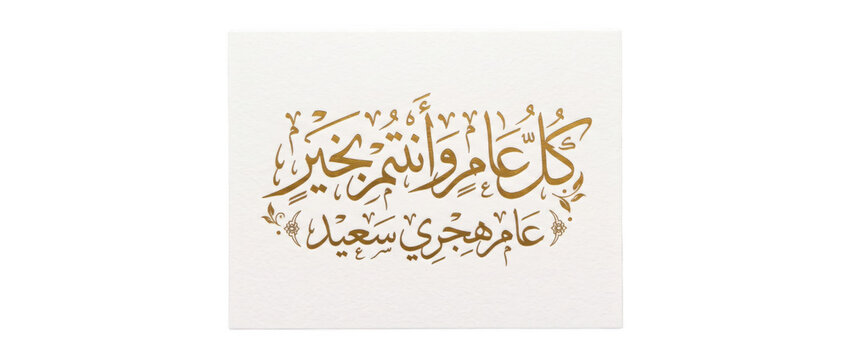 كُلُّ عَامٍ وَأَنتُمْ بِخَيْرٍ
عَام هِجْرِي سَعِيْد